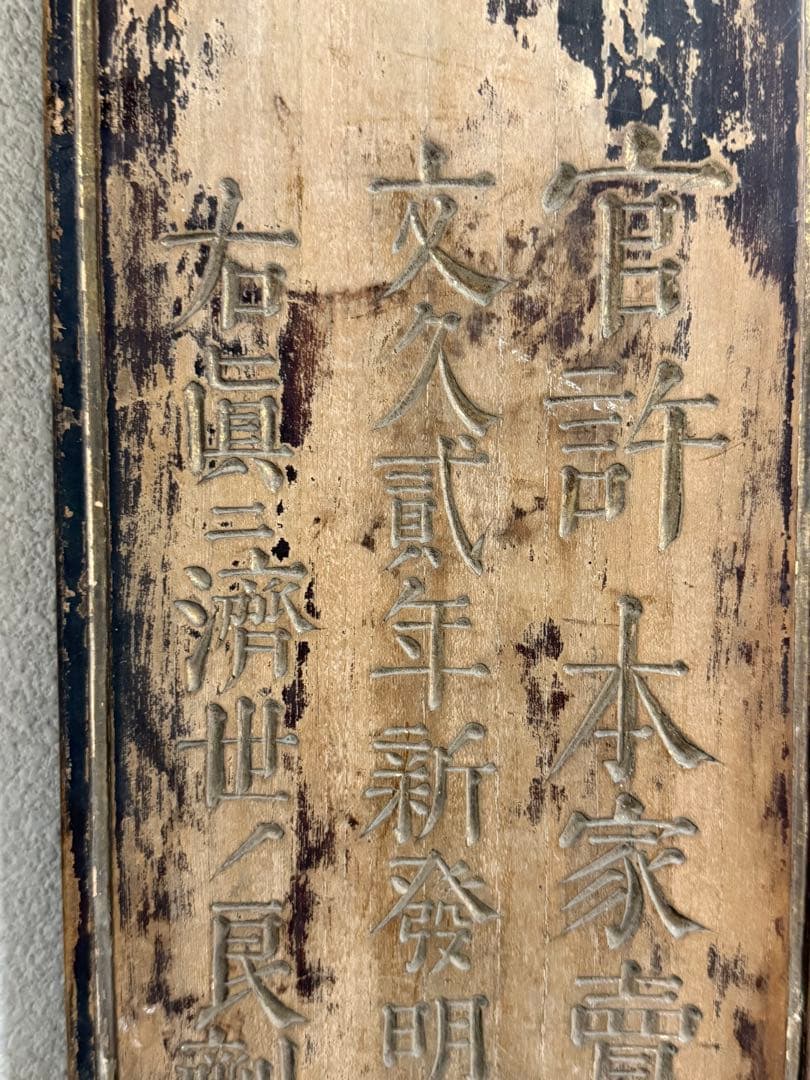 官許 本家賣
文久貳年新發明
右眞ニ濟世ノ良劑